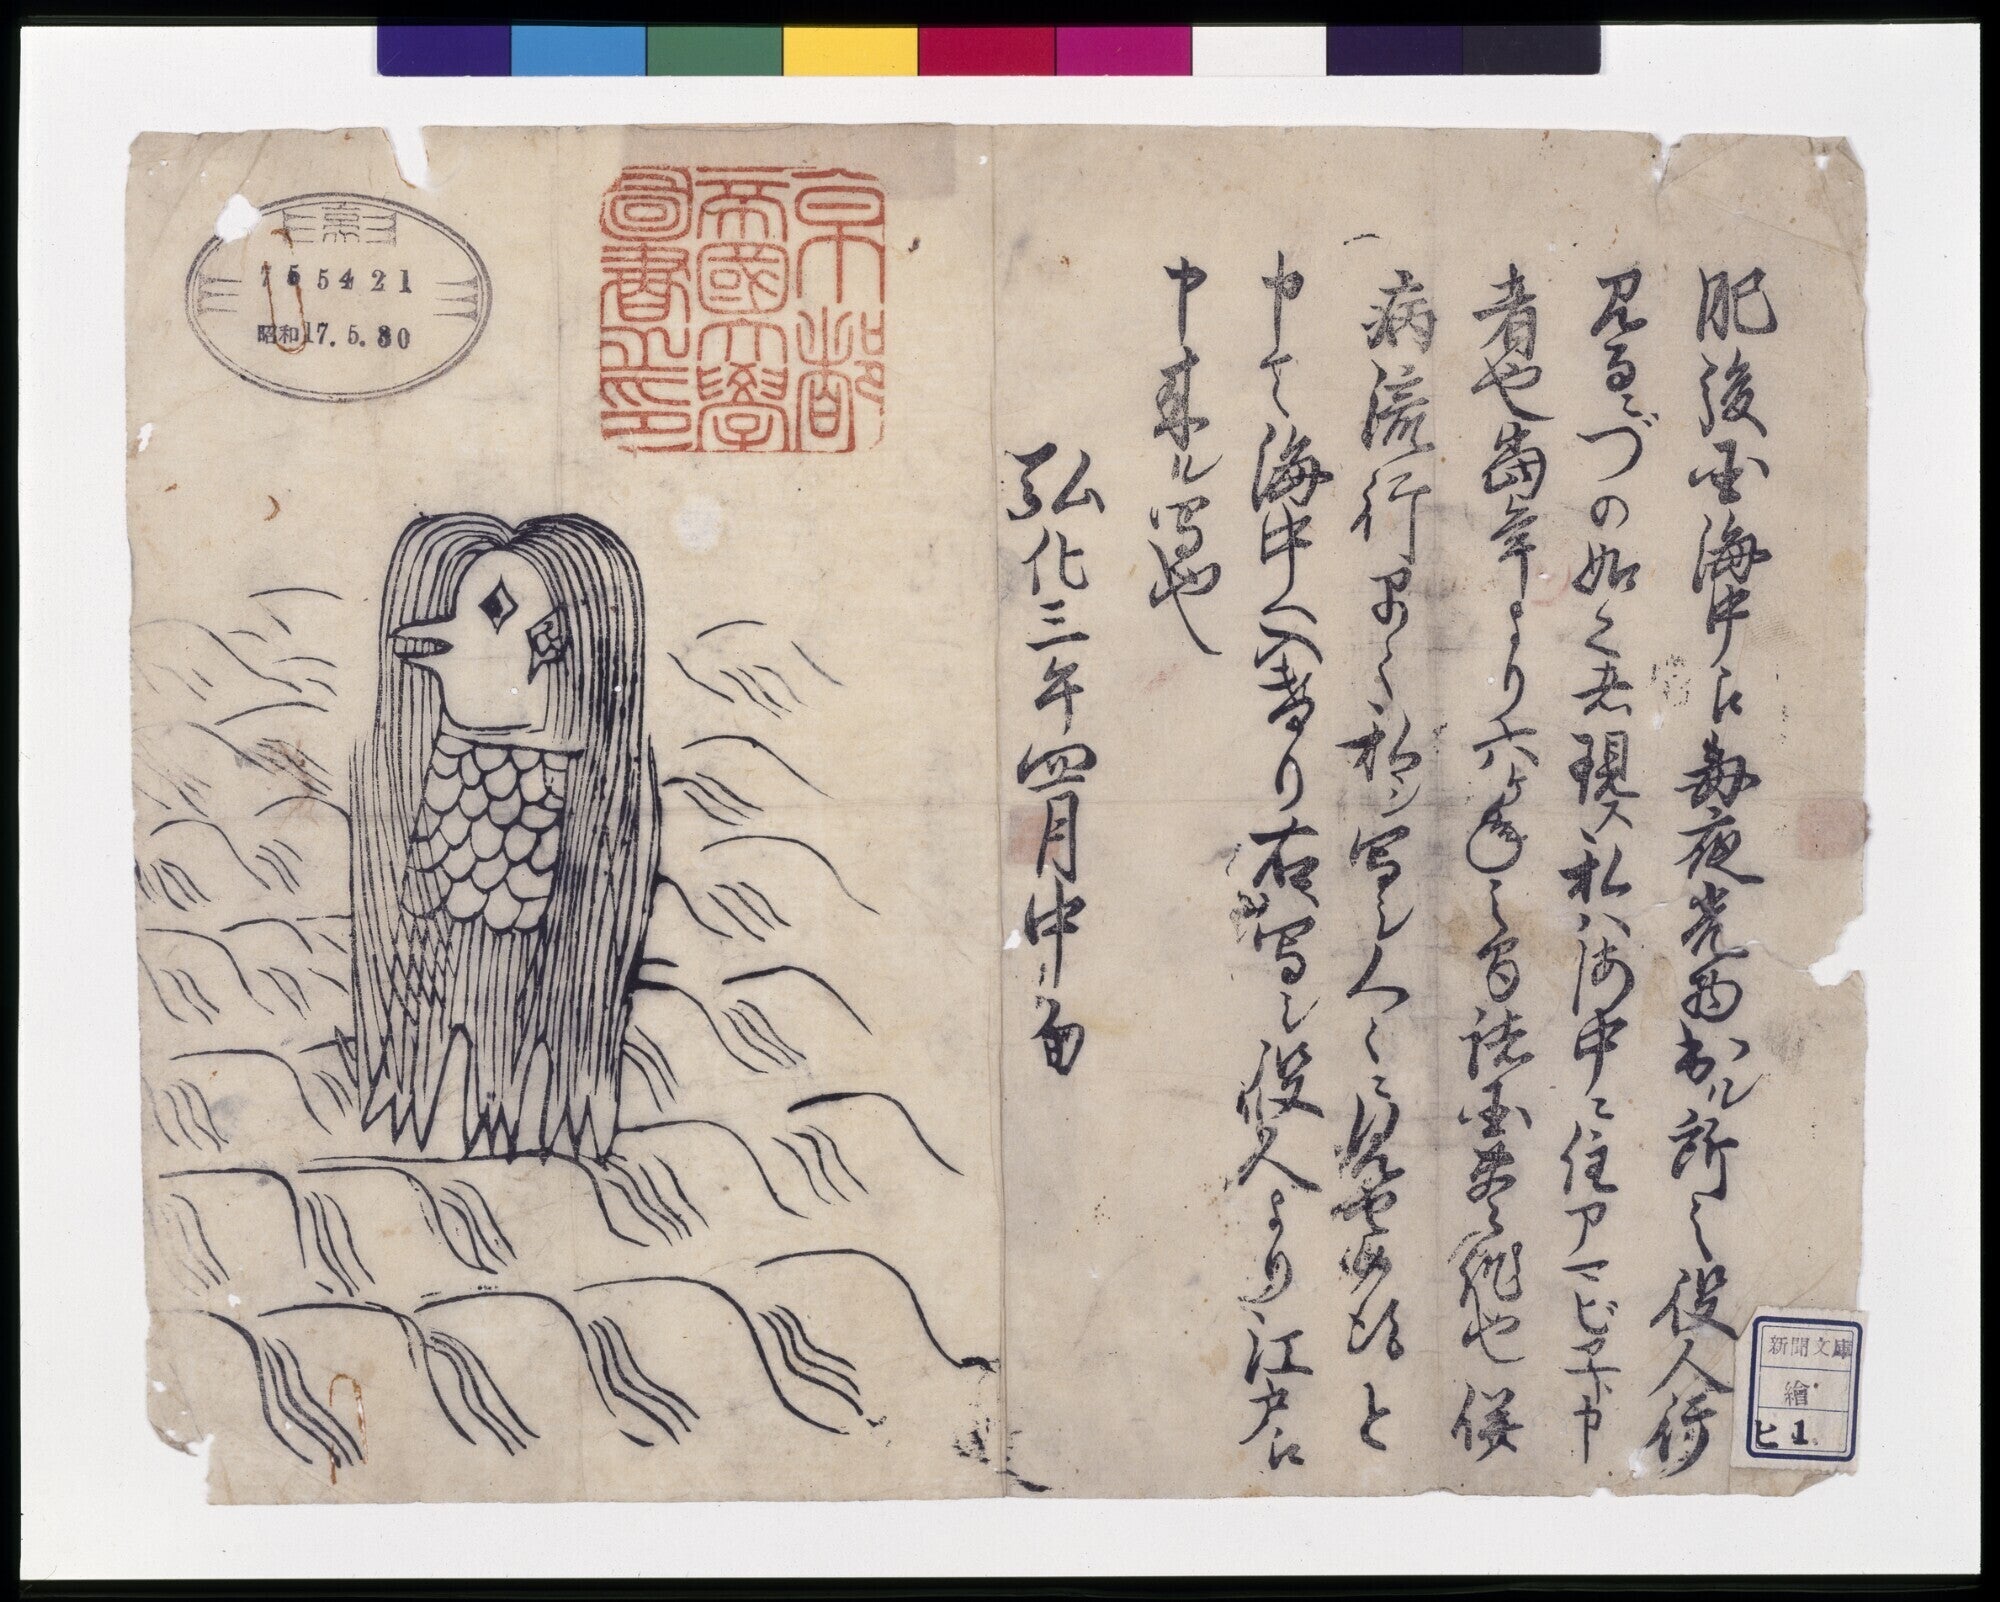 肥後国海中江毎夜光物出ル所之役人行
見るニづの如く者現ス私ハ海中ニ住アマビヱト申
者也当年より六ヶ年之間諸国豊作也併
病流行早々私シ写シ人々ニ見セ候得と
申て海中へ入けり右写シ役人より江戸江
申来ル写也
弘化三年四月中旬
京都
帝國大學
圖書之印
755421
昭和17.5.30
新聞文庫
繪
ヒ1